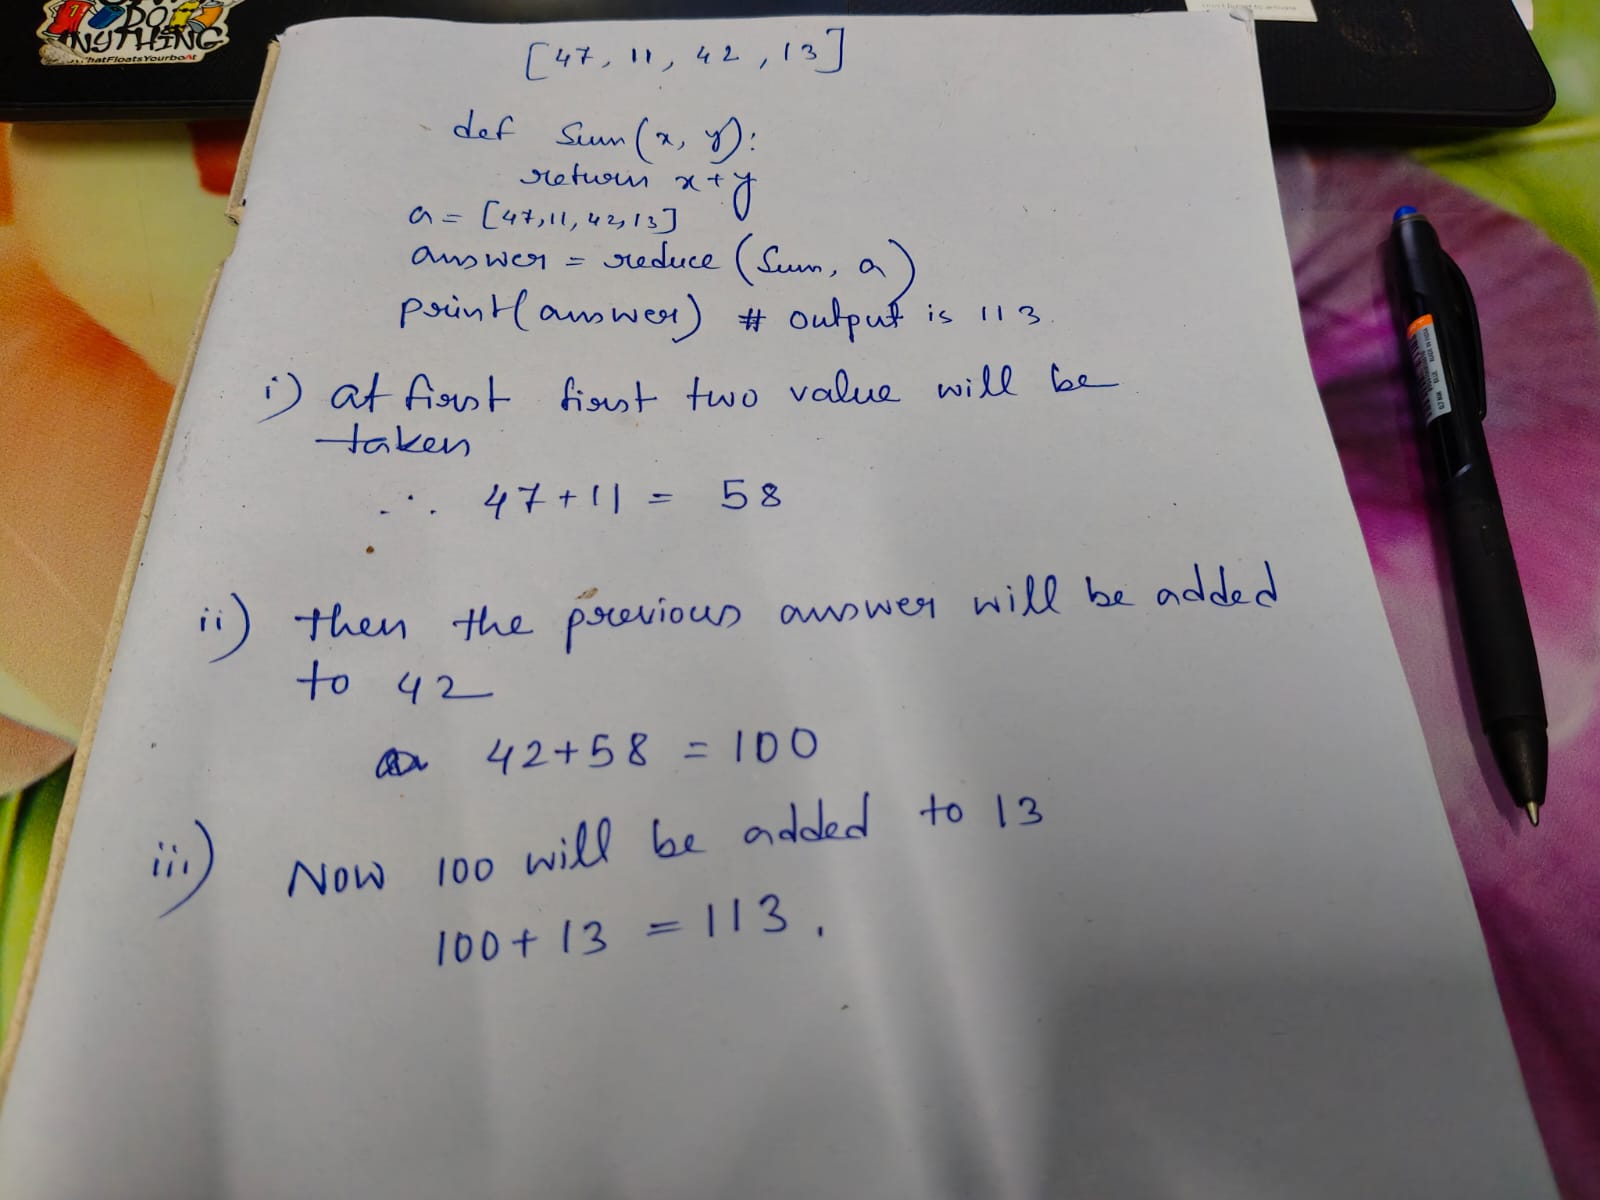 DO
ANYTHING
[47, 11, 42, 13]
def Sum(x, y):
return x+y
a = [47,11,42,13]
answer = reduce (Sum, a)
print(answer) # output is 113.
i) at first first two value will be
taken
∴ 47+11 = 58
ii) then the previous answer will be added
to 42
42+58 = 100
iii) Now 100 will be added to 13
100+13 = 113.